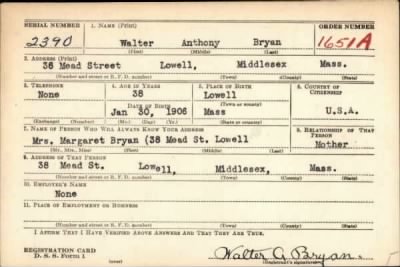 SERIAL NUMBER 1. NAME (Print) ORDER NUMBER
2390 Walter Anthony Bryan 1651A
(First) (Middle) (Last)
2. ADDRESS (Print)
38 Mead Street Lowell, Middlesex Mass.
(Number and street or R. F. D. number) (Town) (County) (State)
3. TELEPHONE 4. AGE IN YEARS 5. PLACE OF BIRTH 6. COUNTRY OF CITIZENSHIP
None 38 Lowell
(Town or county)
DATE OF BIRTH
Jan 30, 1906 Mass U.S.A.
(Exchange) (Number) (Mo.) (Day) (Yr.) (State or country)
7. NAME OF PERSON WHO WILL ALWAYS KNOW YOUR ADDRESS 8. RELATIONSHIP OF THAT PERSON
Mrs. Margaret Bryan (38 Mead St. Lowell Mother
(Mr., Mrs., Miss) (First) (Middle) (Last)
9. ADDRESS OF THAT PERSON
38 Mead St. Lowell, Middlesex, Mass.
(Number and street or R. F. D. number) (Town) (County) (State)
10. EMPLOYER'S NAME
None
11. PLACE OF EMPLOYMENT OR BUSINESS
(Number and street or R. F. D. number) (Town) (County) (State)
I AFFIRM THAT I HAVE VERIFIED ABOVE ANSWERS AND THAT THEY ARE TRUE.
REGISTRATION CARD
D. S. S. FORM 1 (over) Walter A Bryan.
(Registrant's signature)